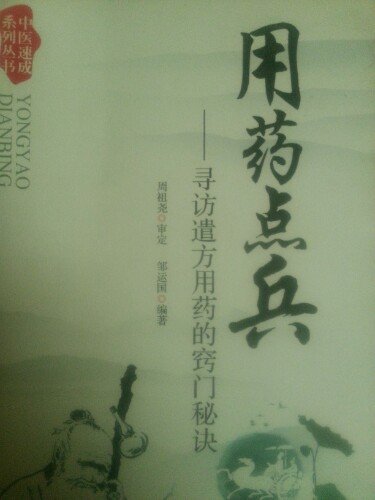 中医速成
系列丛书
YONGYAO
DIANBING
用药点兵
——寻访遣方用药的窍门秘诀
周祖尧◎审定 邹运国◎编著